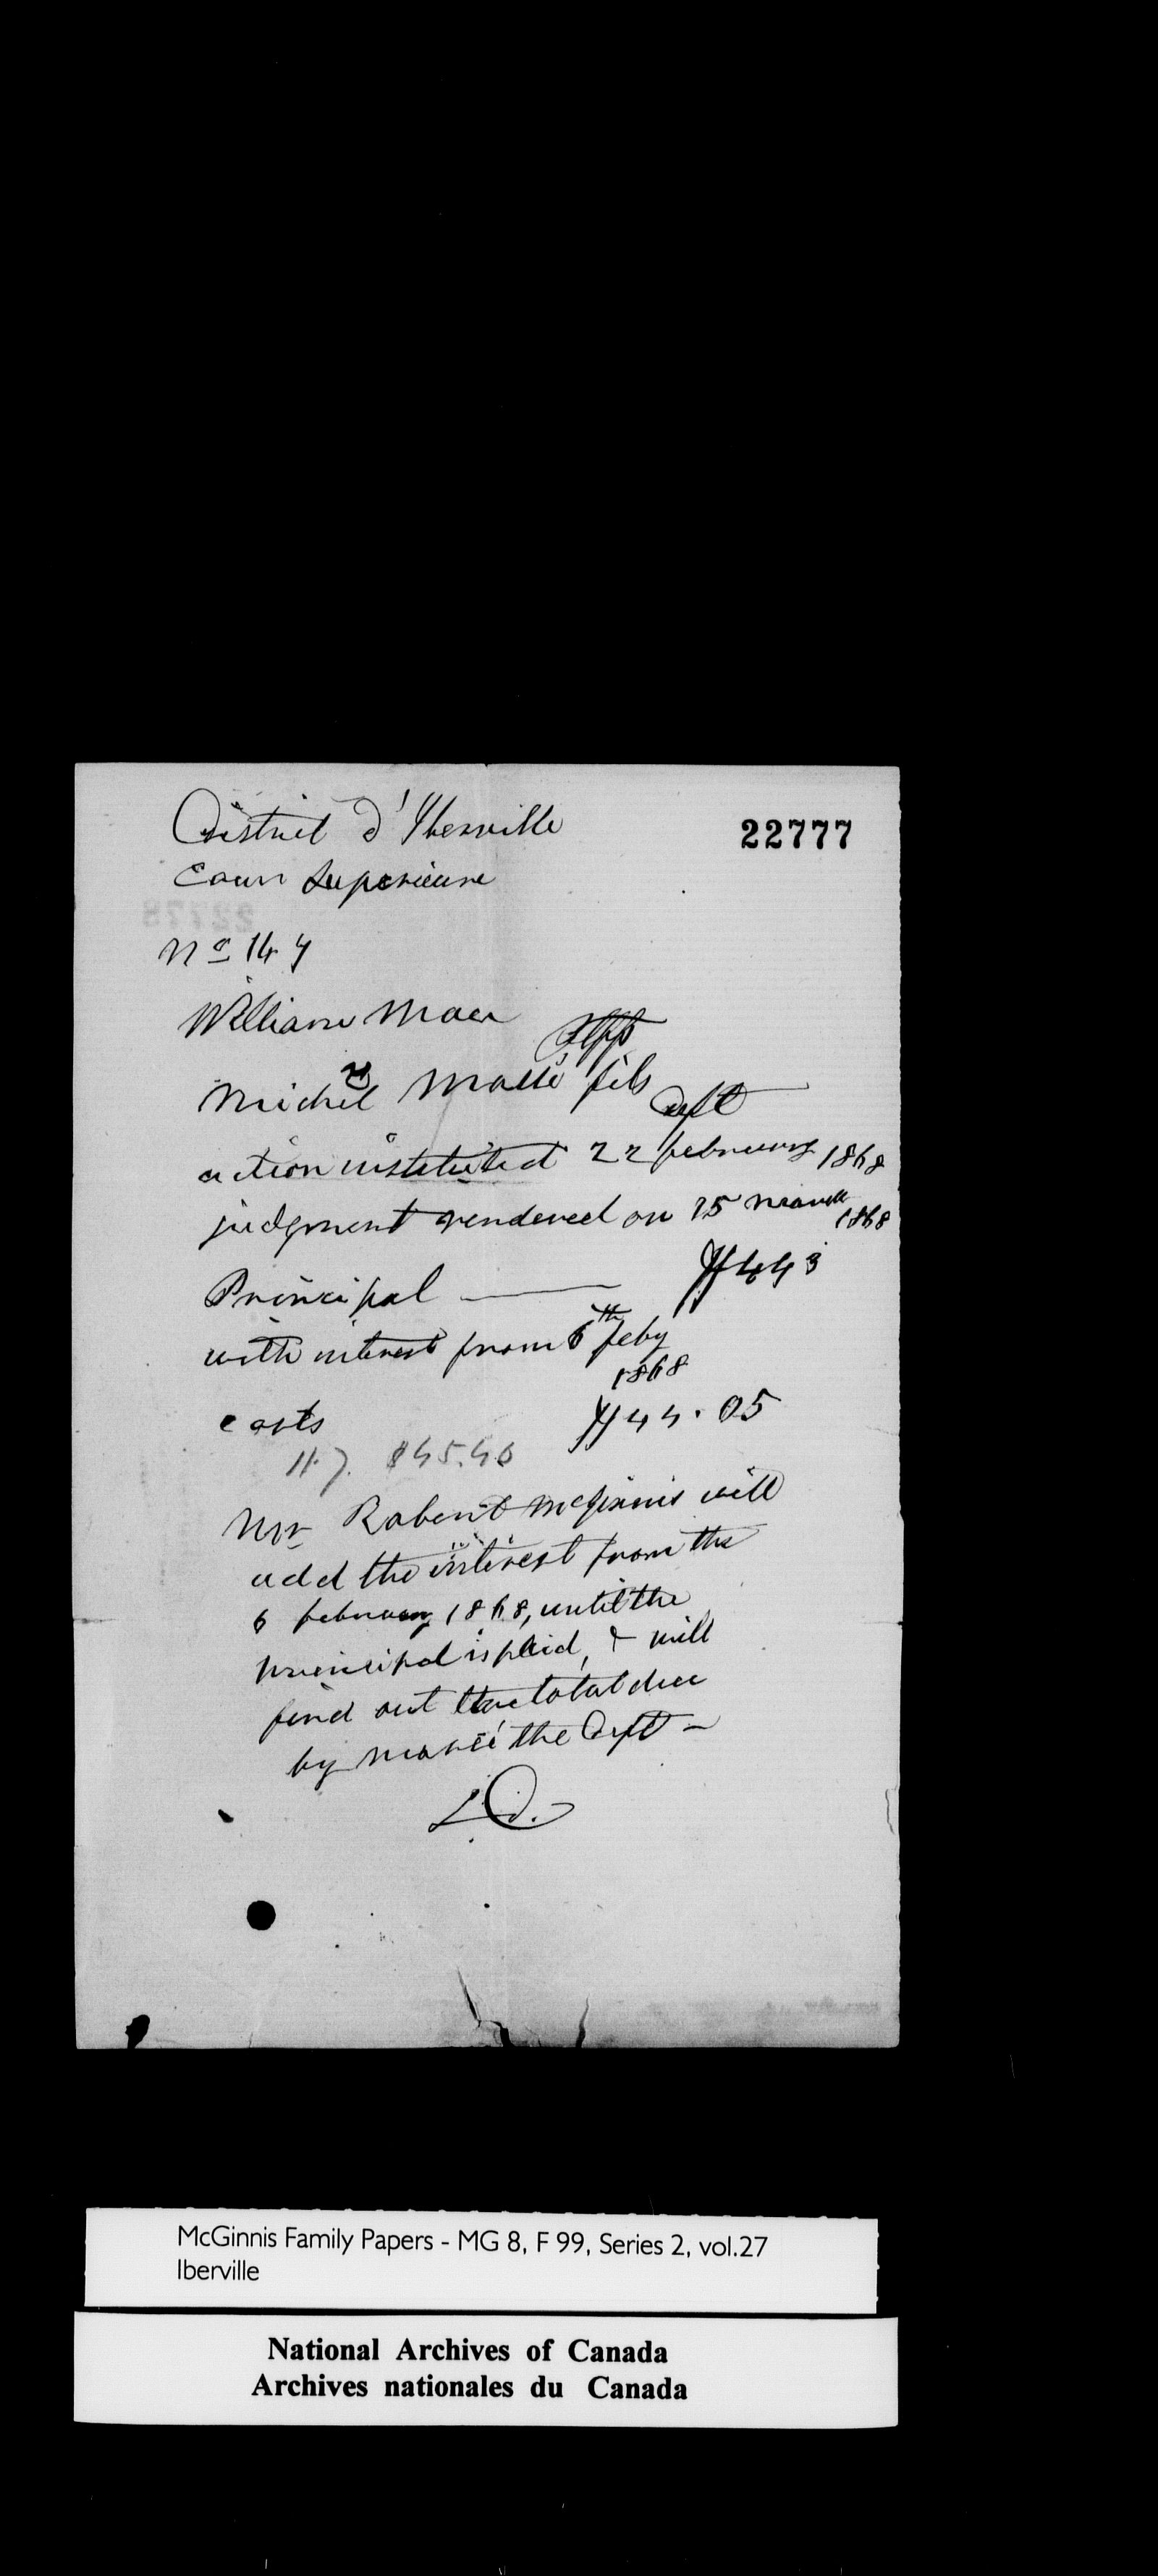 District d'Iberville
22777
Cour Superieure
No 147
William Macc
Plff
vs
Michel Massé fils
Deft
action instituted 22 february 1868
judgment rendered on 15 march
1868
Principal — $443
with interest from 6th feby
1868
costs $44.05
$45.40
Mr Robert McGinnis will
add the interest from the
6 february 1868, until the
principal is plaid, & will
find out the total due
by Massé the Deft —
L.D.
McGinnis Family Papers - MG 8, F 99, Series 2, vol.27
Iberville
National Archives of Canada
Archives nationales du Canada